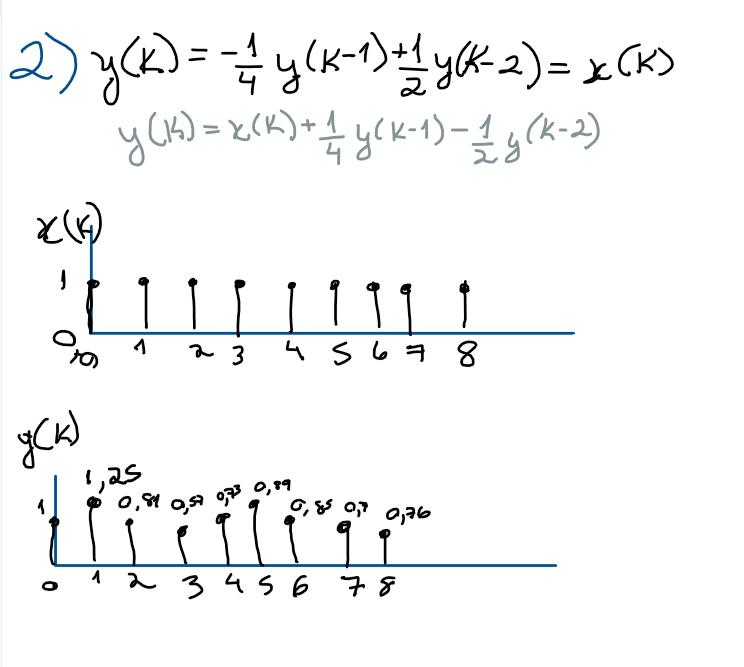 2) y(k) = -1/4 y(k-1) + 1/2 y(k-2) = x(k)
y(k) = x(k) + 1/4 y(k-1) - 1/2 y(k-2)
x(k)
1
0
0 1 2 3 4 5 6 7 8
y(k)
1,25
1 0,81 0,57 0,73 0,89 0,85 0,7 0,76
0 1 2 3 4 5 6 7 8